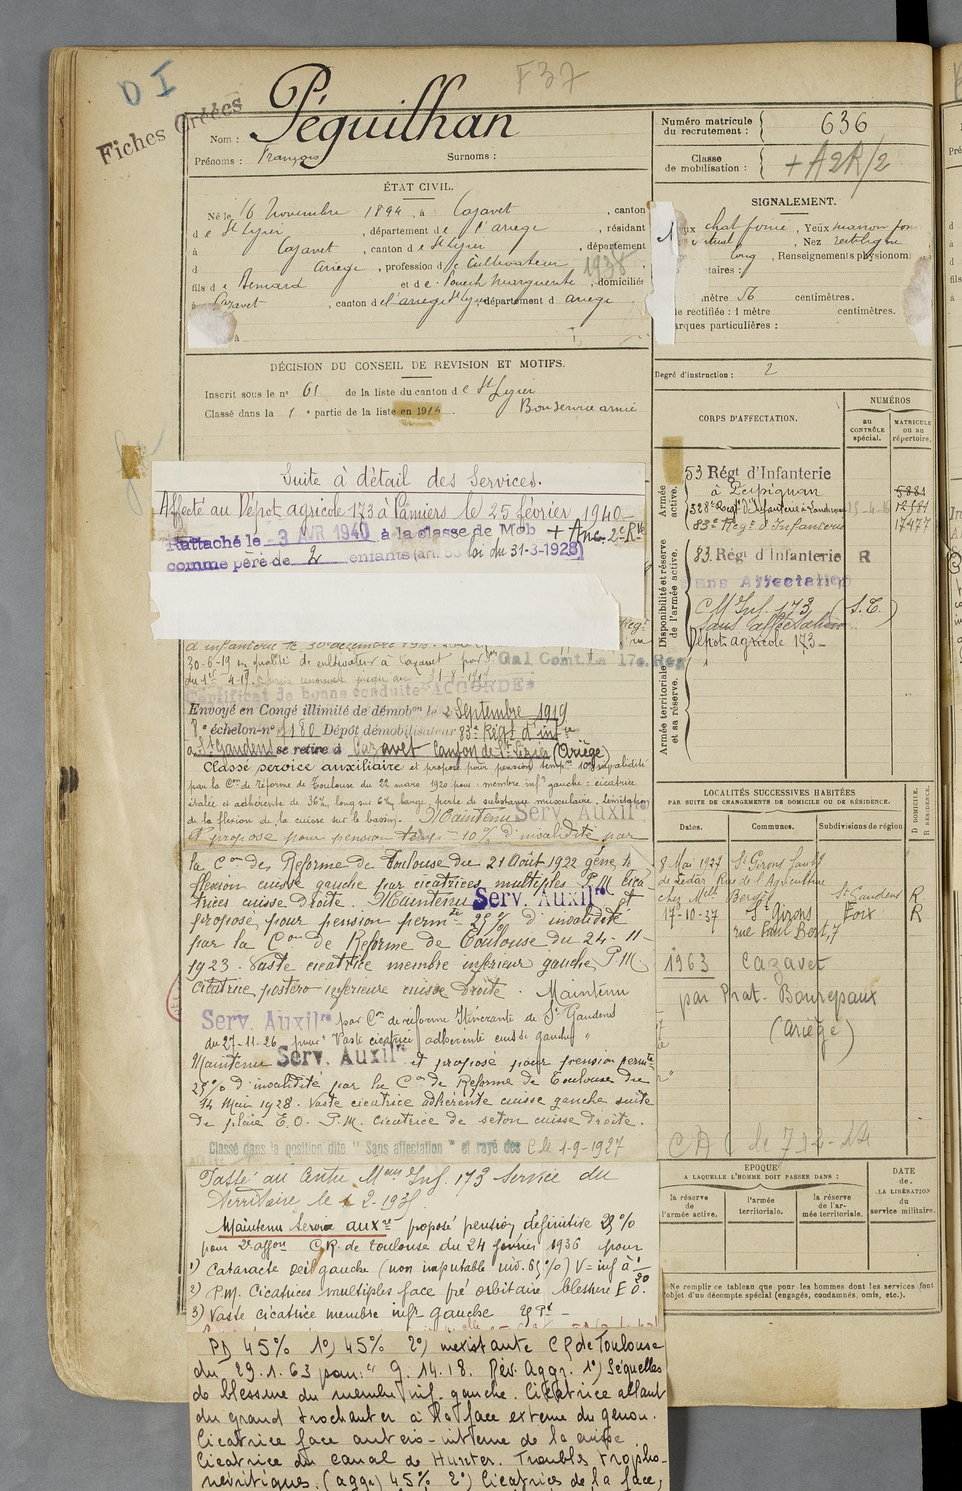 D I
F37
Fiches Créées
Nom : Péguilhan
Prénoms : François Surnoms :
Numéro matricule du recrutement : 636
Classe de mobilisation : + A2R/2
ÉTAT CIVIL.
Né le 16 Novembre 1894, à Cazavet, canton
d e St Lizier, département d e l'ariege, résidant
à Cazavet, canton d e St Lizier, département
d Ariège, profession d e Cultivateur
1938
fils d e Bernard et d e Pouech Marguerite, domiciliés
à Cazavet, canton d département d ariege
SIGNALEMENT.
chat foncé, Yeux marron
Nez rectiligne
long, Renseignements physionom
taires :
mètre 56 centimètres.
le rectifiée : 1 mètre centimètres.
arques particulières :
Degré d'instruction : 2
DÉCISION DU CONSEIL DE REVISION ET MOTIFS.
Inscrit sous le n° 61 de la liste du canton d e St Lizier
Classé dans la 1e partie de la liste en 1914. Bon service armé
CORPS D'AFFECTATION.
NUMÉROS
au CONTRÔLE spécial.
MATRICULE ou au répertoire.
Armée active.
53 Régt d'Infanterie
à Perpignan 5881
328e Regt d'Infanterie 12581
83e Regt d'Infanterie 17477
Disponibilité et réserve de l'armée active.
83. Régt d'Infanterie R
Sans Affectation
C M Inf. 173 (S.T.)
Sans affectation
Dépôt agricole 173
Armée territoriale et sa réserve.
Suite à détail des Services.
Affecté au Dépôt agricole 173 à Pamiers le 25 février 1940
Rattaché le -3 AVR 1940 à la classe de Mob + Anc. 2e Rve
comme père de 2 enfants (art. 58 loi du 31-3-1928)
d'infanterie le 30 décembre
30-6-19 en qualité de cultivateur à Cazavet par Gal Comt La 17e Reg
Certificat de bonne conduite "ACCORDÉ"
Envoyé en Congé illimité de démobon le 2 Septembre 1919
8e échelon n° 1180 Dépôt démobilisateur 83e Régt d'infie
à St Gaudens se retire à Cazavet Canton de St Lizier (Ariège)
Classé service auxiliaire et proposé pour pension tempre 10% invalidité
par la Con de réforme de Toulouse du 22 mars 1920 pour : membre infr gauche : cicatrice
étalée et adhérente de 36%, long sur 6% large, perte de substance musculaire. Limitation
de la flexion de la cuisse sur le bassin. Maintenu Serv. Auxil
et proposé pour pension temp. 10% d'invalidité par
la Con de Réforme de Toulouse du 21 Août 1922 gêne
flexion cuisse gauche par cicatrices multiples P.M cica-
trices cuisse Droite. Maintenu Serv. Auxilre et
proposé pour pension permte 25% d'invalidité
par la Con de Réforme de Toulouse du 24-11-
1923. Vaste cicatrice membre inférieur gauche, P.M
cicatrice postéro-inférieure cuisse Droite. Maintenu
Serv. Auxilre par Con de réforme Itinérante de St Gaudens
du 27-11-26 pour "Vaste cicatrice adhérente cuisse gauche"
Maintenu Serv. Auxilre et proposé pour pension permte
25% d'invalidité par la Con de Réforme de Toulouse du
14 Mai 1928. Vaste cicatrice adhérente cuisse gauche suite
de plaie E.O. P.M. cicatrice de séton cuisse droite.
Classé dans la position dite "Sans affectation" et rayé des C le 1-9-1927
Passé au Centre Inf. 173 Service du
Territoire le
Maintenu Service auxre proposé pension définitive 25%
pour 2e affon C.R. de Toulouse du 24 février 1936 pour
1) Cataracte œil gauche (non imputable ind. 65%) V = inf à 1/20
2) P.M. Cicatrices multiples face pré orbitaire blessure E O.
3) Vaste cicatrice membre infr gauche
PD 45% 1°) 45% 2°) inexistante CR de Toulouse
du 29.1.63 pour : " G. 14.18. Rév. Aggr. 1°) Séquelles
de blessure du membre inf. gauche. Cicatrice allant
du grand trochanter à la face externe du genou.
Cicatrice face antero-interne de la cuisse.
Cicatrice du canal de Hunter. Troubles tropho-
neuritiques. (aggr) 45% 2°) Cicatrices de la face,
LOCALITÉS SUCCESSIVES HABITÉES
PAR SUITE DE CHANGEMENTS DE DOMICILE OU DE RÉSIDENCE.
Dates. Communes. Subdivisions de région D DOMICILE. R RÉSIDENCE.
8 Mai 1927 St Girons
Rue de l'Agriculture
chez Melle St Gaudens R
17-10-37 St Girons Foix R
rue Paul Bert, 7
1963 Cazavet
par Prat-Bonrepaux
(Ariège)
ÉPOQUE
A LAQUELLE L'HOMME DOIT PASSER DANS :
la réserve de l'armée active.
l'armée territoriale.
la réserve de l'armée territoriale.
DATE de LA LIBÉRATION du service militaire.
Ne remplir ce tableau que pour les hommes dont les services font
l'objet d'un décompte spécial (engagés, condamnés, omis, etc.).